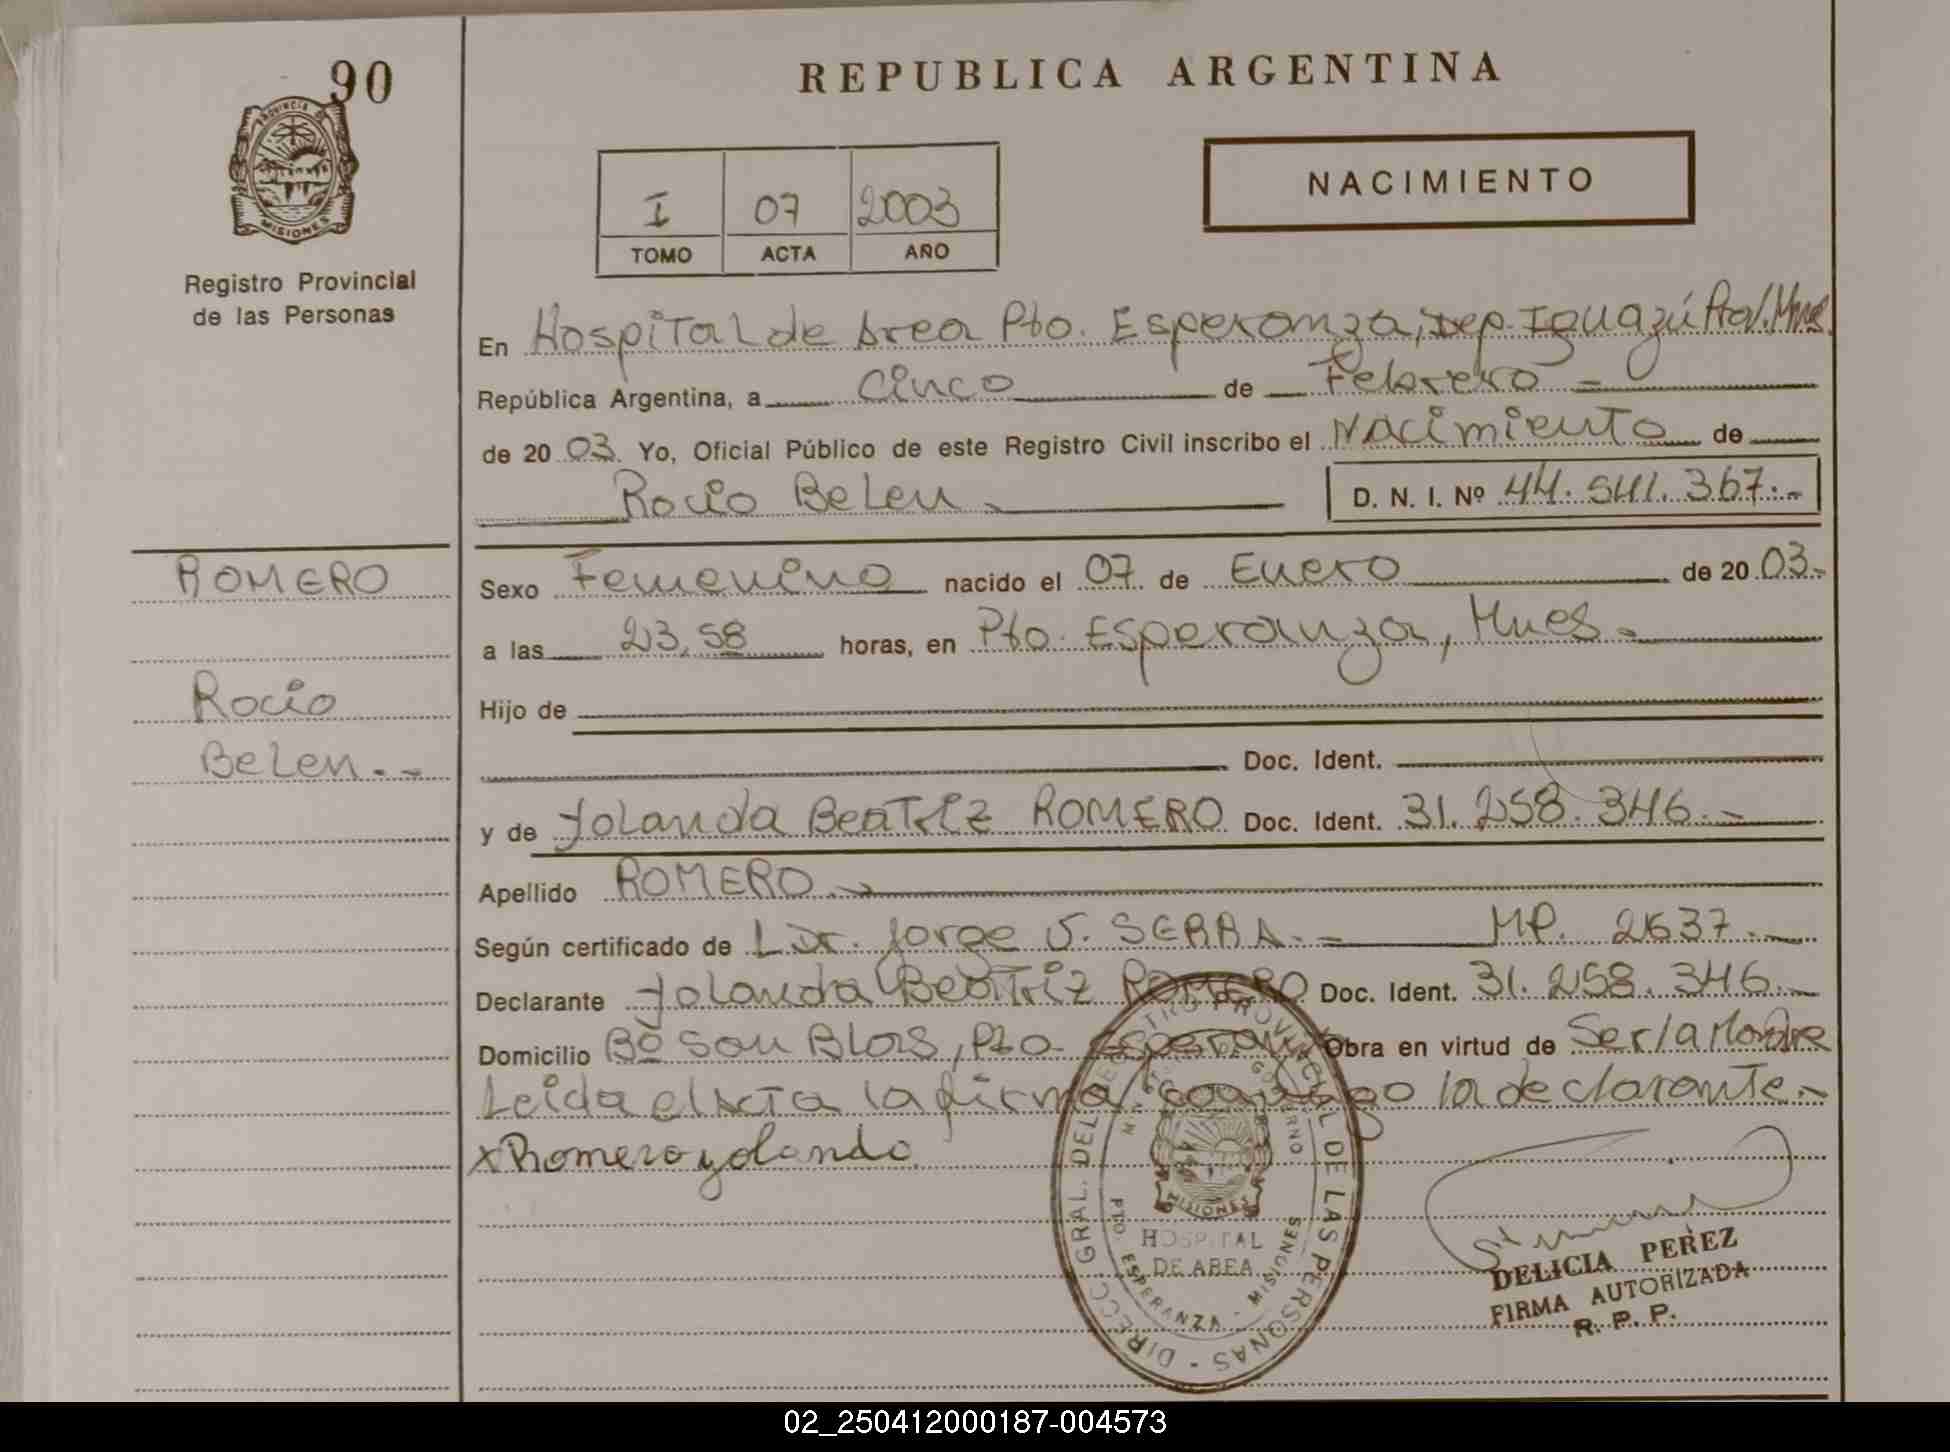 90
PROVINCIA DE
MISIONES
Registro Provincial
de las Personas
REPUBLICA ARGENTINA
I 07 2003
TOMO ACTA AÑO
NACIMIENTO
En Hospital de Area Pto. Esperanza, Dep. Iguazú Mnes.
República Argentina, a Cinco de Febrero -
de 20 03. Yo, Oficial Público de este Registro Civil inscribo el Nacimiento de
Rocio Belen D. N. I. Nº 44.541.367.-
ROMERO
Rocio
Belen.-
Sexo Femenino nacido el 07 de Enero de 20 03-
a las 23,58 horas, en Pto. Esperanza, Mnes-
Hijo de
Doc. Ident.
y de Yolanda Beatriz ROMERO Doc. Ident. 31.258.346.-
Apellido ROMERO.-
Según certificado de Dr. Jorge SERRA.- MP. 2637.-
Declarante Yolanda Beatriz ROMERO Doc. Ident. 31.258.346.-
Domicilio Bº San Blas, Pto. Esperanza Obra en virtud de Ser la Madre
Leida el Acta la firma conmigo la declarante.-
x Romero yolanda
DIRECC. GRAL. DEL REGISTRO PROVINCIAL DE LAS PERSONAS -
GOBIERNO
MISIONES
HOSPITAL
DE AREA
PTO. ESPERANZA - MISIONES
DELICIA PEREZ
FIRMA AUTORIZADA
R. P. P.
02_250412000187-004573